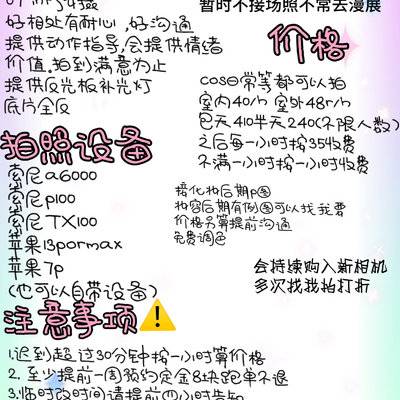 好相处有耐心,好沟通
提供动作指导,会提供情绪
价值.拍到满意为止
提供反光板补光灯
底片全反
拍照设备
索尼a6000
索尼p100
索尼TX100
苹果13pormax
苹果7p
(也可以自带设备)
暂时不接场照不常去漫展
价格
cos日常等都可以拍
室内40/h 室外48r/h
包天410半天240(不限人数)
之后每一小时按35收费
不满一小时按一小时收费
接化妆后期p图
妆容后期有例图可以找我要
价格另算提前沟通
免费调色
会持续购入新相机
多次找我拍打折
注意事项
1.迟到超过30分钟按一小时算价格
2.至少提前一周预约定金8块跑单不退
3.临时改时间请提前四小时告知